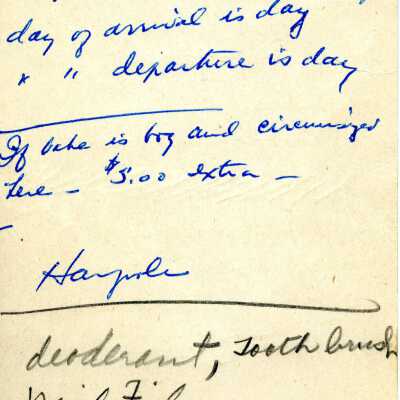 day of arrival is day
" " departure is day
If babe is boy and circumsized
here - $5.00 extra -
deoderant, Toothbrush
Nail File